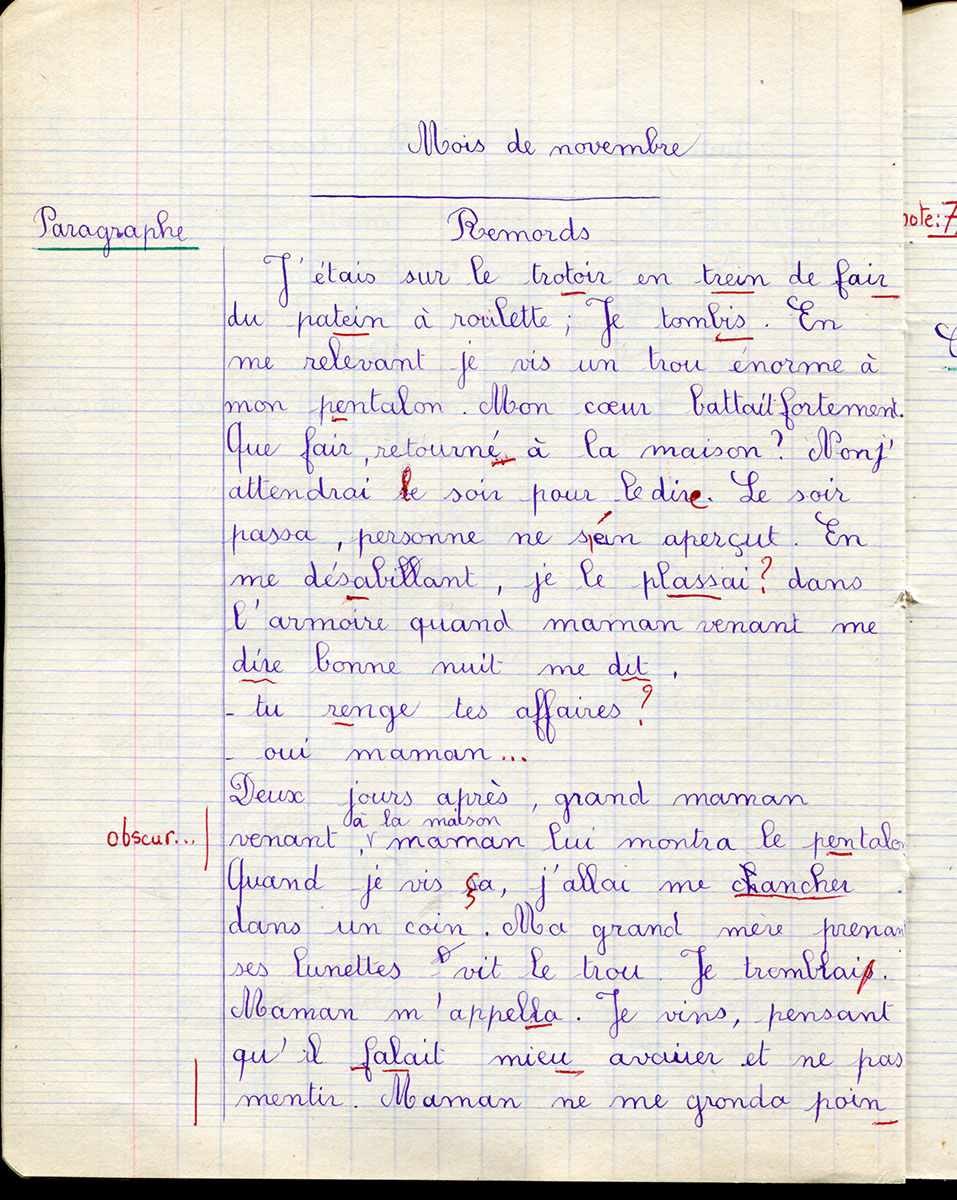 Mois de novembre
Paragraphe
Remords
note: 7
J'étais sur le trotoir en trein de fair
du patein à roulette ; Je tombis. En
me relevant je vis un trou énorme à
mon pentalon. Mon cœur battait fortement.
Que fair, retourné à la maison ? Non j'
attendrai le soir pour le dire. Le soir
passa, personne ne s'én aperçut. En
me désabillant, je le plassai ? dans
l'armoire quand maman venant me
dire bonne nuit me dit,
- tu renge tes affaires ?
- oui maman...
Deux jours après, grand maman
à la maison
obscur...
venant, maman lui montra le pentalon
Quand je vis ça, j'allai me chancher
dans un coin. Ma grand mère prenant
ses lunettes vit le trou. Je tremblais.
Maman m'appella. Je vins, pensant
qu'il falait mieu avouer et ne pas
mentir. Maman ne me gronda poin